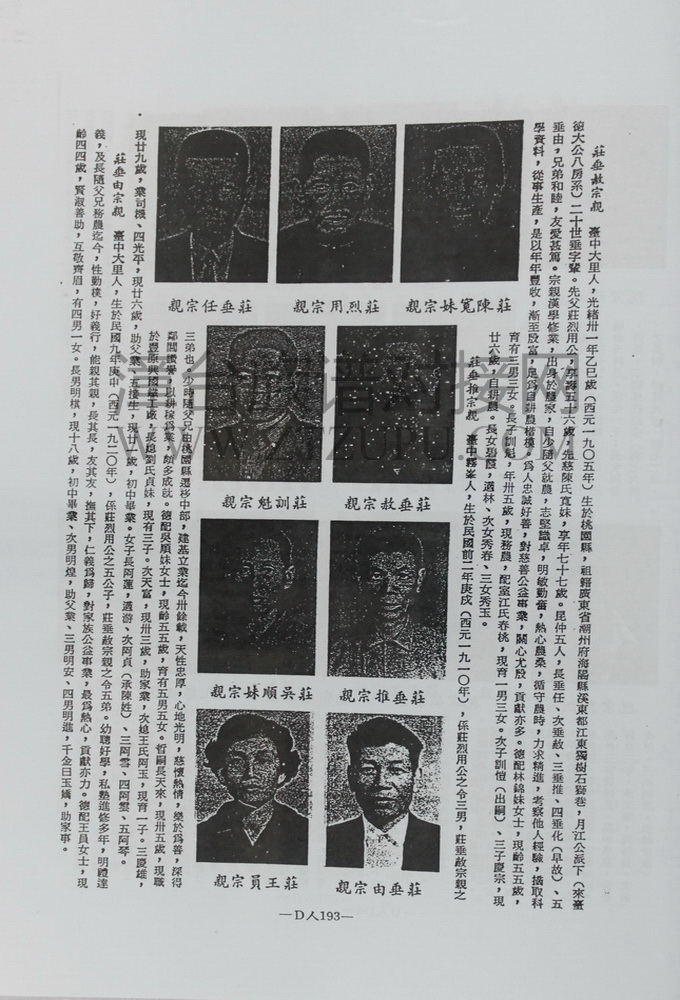 莊垂赦宗親　臺中大里人，光緒卅一年乙巳歲（西元一九〇五年）生於桃園縣，祖籍廣東省潮州府海陽縣溪東都江東獨樹石獅巷，月江公派下（來臺
德大公八房系）二十世垂字輩。先父莊烈用公，享壽五十六歲，先慈陳氏寬妹，享年七十七歲。昆仲五人，長垂任、次垂赦、三垂推、四垂化（早故）、五
垂由，兄弟和睦，友愛甚篤。宗親漢學修業，出身於農家，自少隨父就農，志堅識卓，明敏勤奮，熱心農桑，循守農時，力求精進，考察他人經驗，擷取科
學資料，從事生產，是以年年豐收，漸至殷富，足為自耕農楷模。為人忠誠好善，對慈善公益事業，關心尤殷，貢獻亦多。德配林錦妹女士，現齡五五歲，
育有三男三女。長子訓魁，年卅五歲，現務農，配室江氏春桃，現育一男三女。次子訓愷（出嗣）、三子慶宗，現
廿六歲，自耕農。長女碧霞，適林、次女秀春、三女秀玉。
莊垂推宗親　臺中霧峯人，生於民國前二年庚戌（西元一九一〇年），係莊烈用公之令三男，莊垂赦宗親之
莊陳寬妹宗親
莊烈用宗親
莊垂任宗親
莊垂赦宗親
莊訓魁宗親
莊垂推宗親
莊吳順妹宗親
莊垂由宗親
莊王員宗親
三弟也。少時隨父兄由桃園縣遷移中部，建基立業迄今卅餘載，天性忠厚，心地光明，慈懷熱情，樂於為善，深得
鄰閭讚譽，以耕稼為業，頗多成就。德配吳順妹女士，現齡五五歲，育有五男五女。哲嗣長天來，現卅五歲，現職
於豐原興國紙工廠，長媳劉氏貞妹，現有三子。次天富，現卅三歲，助家業，次媳王氏阿玉，現育一子。三慶雄，
現廿九歲，業司機、四光平，現廿六歲，助父業、五接生，現廿一歲，初中畢業。女子長阿蓮，適游、次阿貞（承陳姓）、三阿雪、四阿雲、五阿琴。
莊垂由宗親　臺中大里人，生於民國九年庚申（西元一九二〇年），係莊烈用公之五公子，莊垂赦宗親之令五弟。幼聰好學，私塾進修多年，明禮達
義，及長隨父兄務農迄今，性勤樸，好義行，能親其親，長其長，友其友，撫其下，仁義為歸，對家族公益事業，最為熱心，貢獻亦力。德配王員女士，現
齡四四歲，賢淑善助，互敬齊眉，有四男一女。長男明棋，現十八歲，初中畢業、次男明煌，助父業、三男明安、四男明進，千金曰玉嬌，助家事。
—D人193—
WWW.ZTZUPU.COM